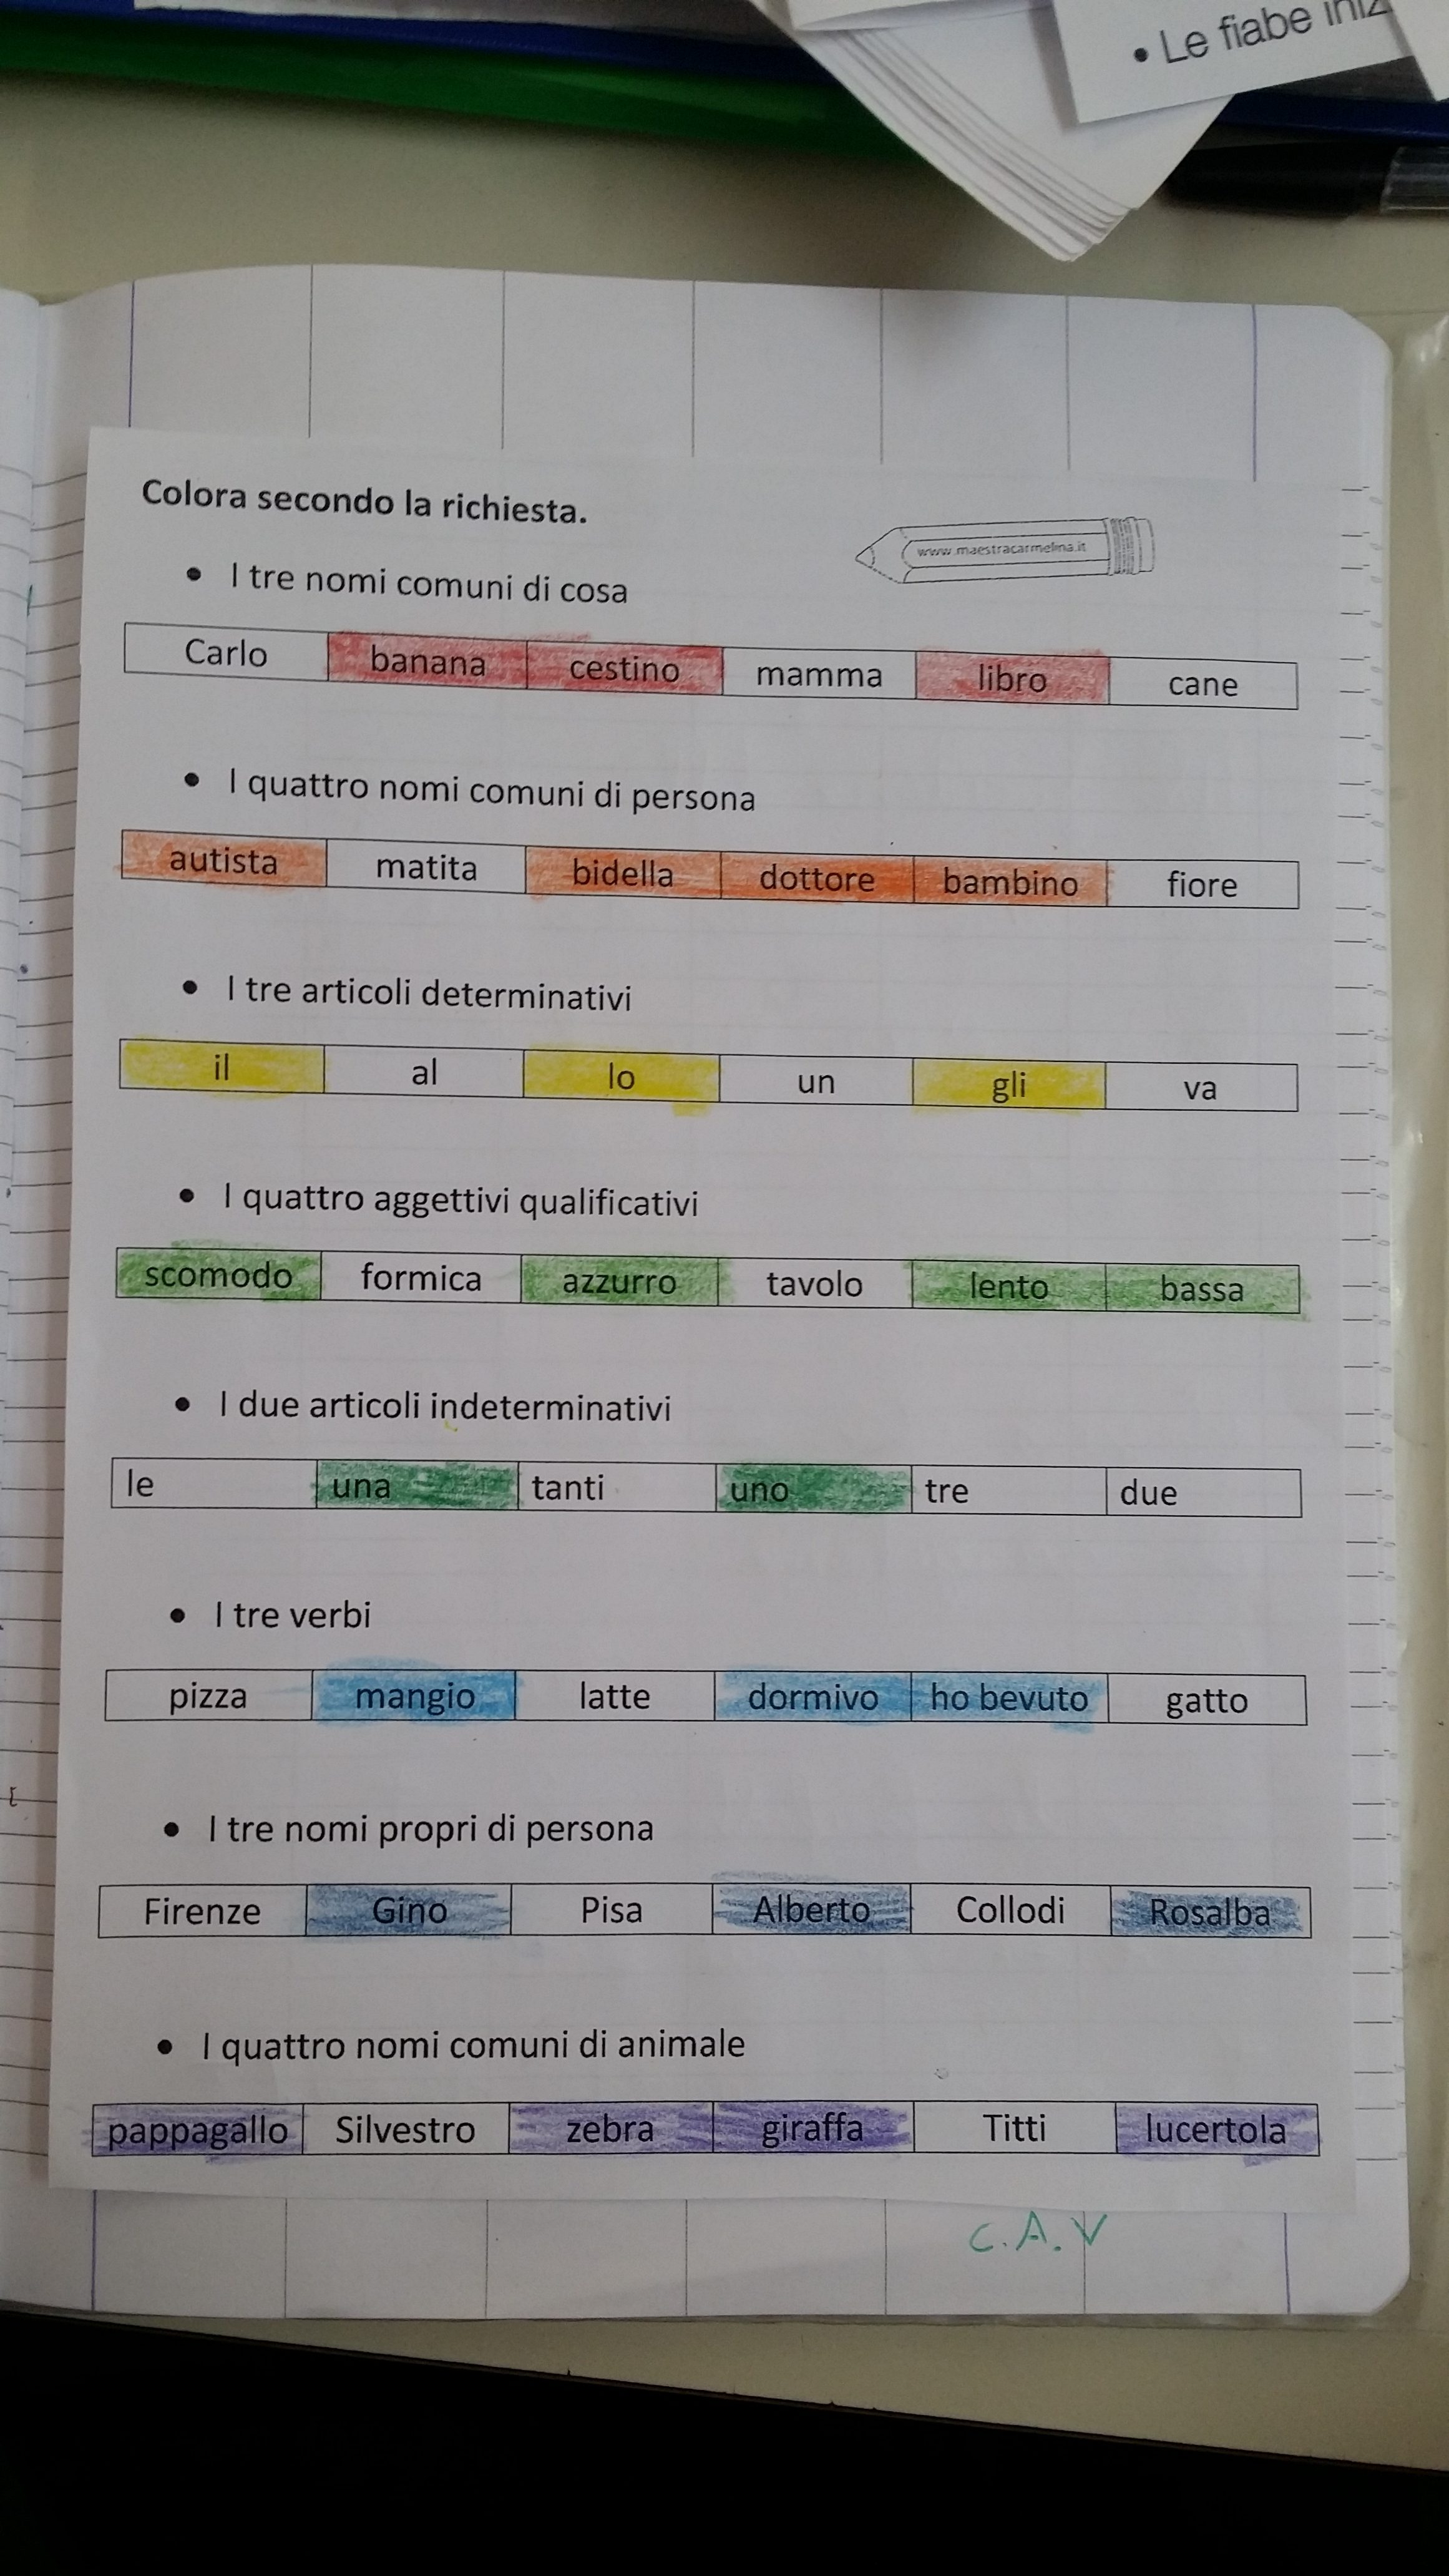 • Le fiabe iniz
Colora secondo la richiesta.
www.maestracarmelina.it
• I tre nomi comuni di cosa
Carlo banana cestino mamma libro cane
• I quattro nomi comuni di persona
autista matita bidella dottore bambino fiore
• I tre articoli determinativi
il al lo un gli va
• I quattro aggettivi qualificativi
scomodo formica azzurro tavolo lento bassa
• I due articoli indeterminativi
le una tanti uno tre due
• I tre verbi
pizza mangio latte dormivo ho bevuto gatto
• I tre nomi propri di persona
Firenze Gino Pisa Alberto Collodi Rosalba
• I quattro nomi comuni di animale
pappagallo Silvestro zebra giraffa Titti lucertola
C.A.V